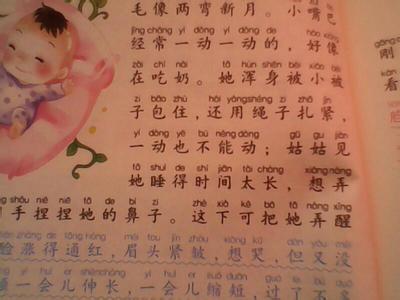 毛像两弯新月。小嘴巴
jīng cháng yí dòng yí dòng de hǎo xiàng
经常一动一动的,好像
zài chī nǎi tā hún shēn bèi xiǎo bèi
在吃奶。她浑身被小被
zi bāo zhù hái yòng shéng zi zā jǐn
子包住,还用绳子扎紧,
yí dòng yě bù néng dòng gū gu jiàn
一动也不能动;姑姑见
tā shuì de shí jiān tài cháng xiǎng nòng
她睡得时间太长,想弄
shǒu niē niē tā de bí zi zhè xià kě bǎ tā nòng xǐng
手捏捏她的鼻子。这下可把她弄醒
liǎn zhàng de tōng hóng méi tou jǐn zhòu xiǎng kū dàn yòu méi
脸涨得通红,眉头紧皱,想哭,但又没
yí huì er shēn cháng yí huì er suō duǎn guò le
一会儿伸长,一会儿缩短,过了
gāng
刚
kàn
看